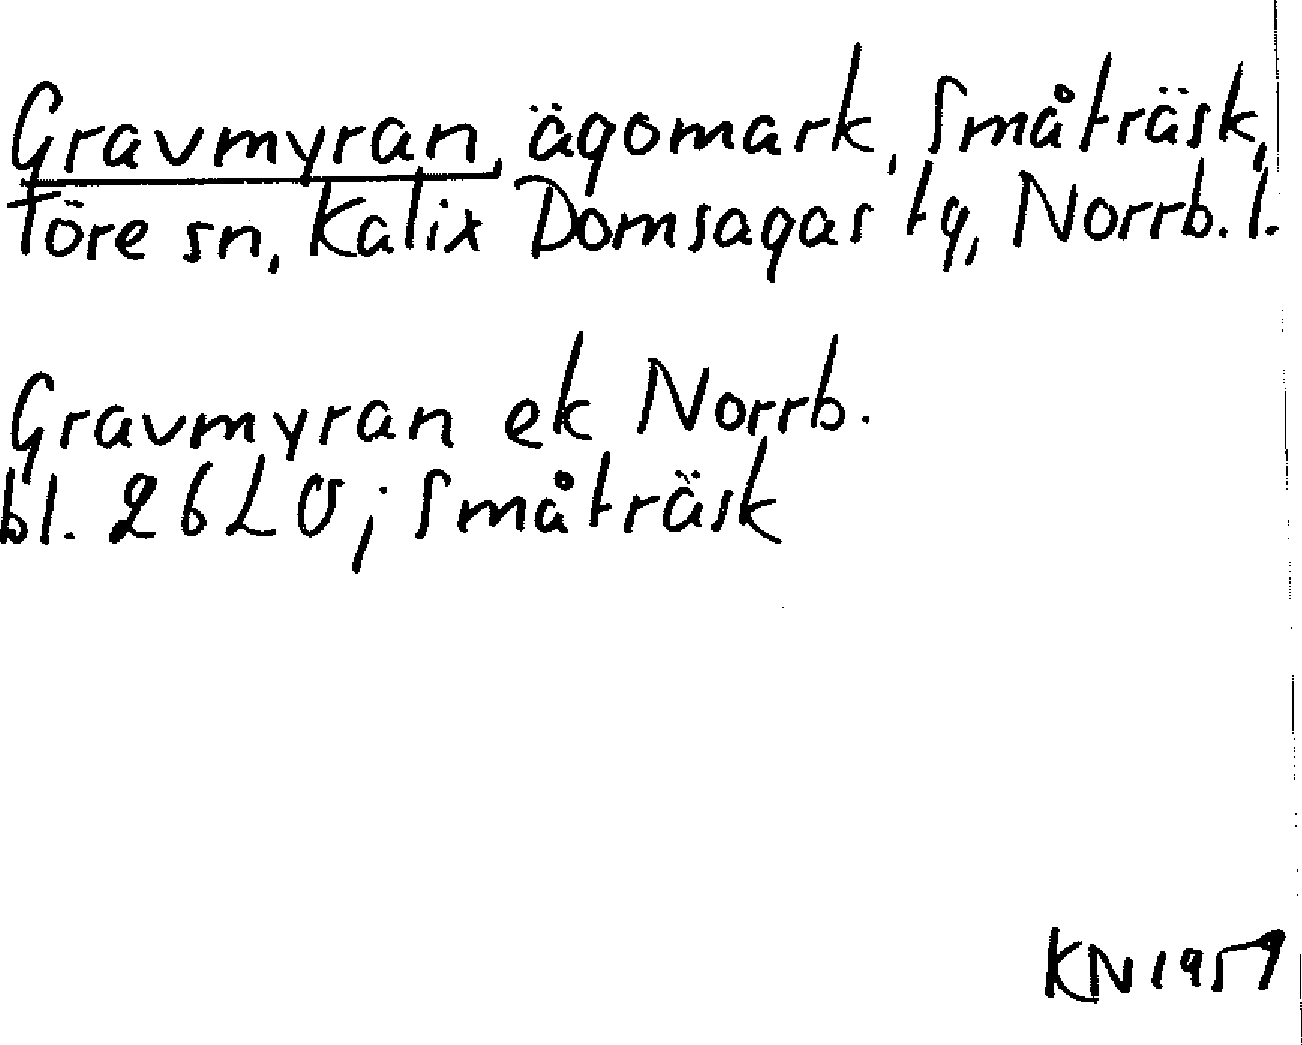 Gravmyran, ägomark, Småträsk,
Töre sn, Kalix Domsagas tg, Norrb. l.
Gravmyran ek Norrb.
bl. 26 L O; Småträsk
KN 1959